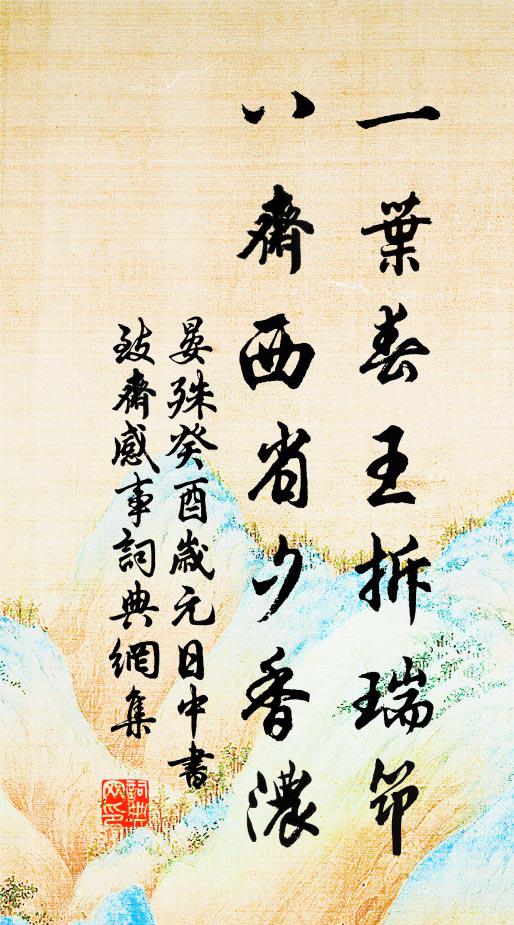 一葉春王拆瑞節
八齋西省夕香濃
晏殊癸酉歲元日中書
致齋感事詞典網集
詞典網印